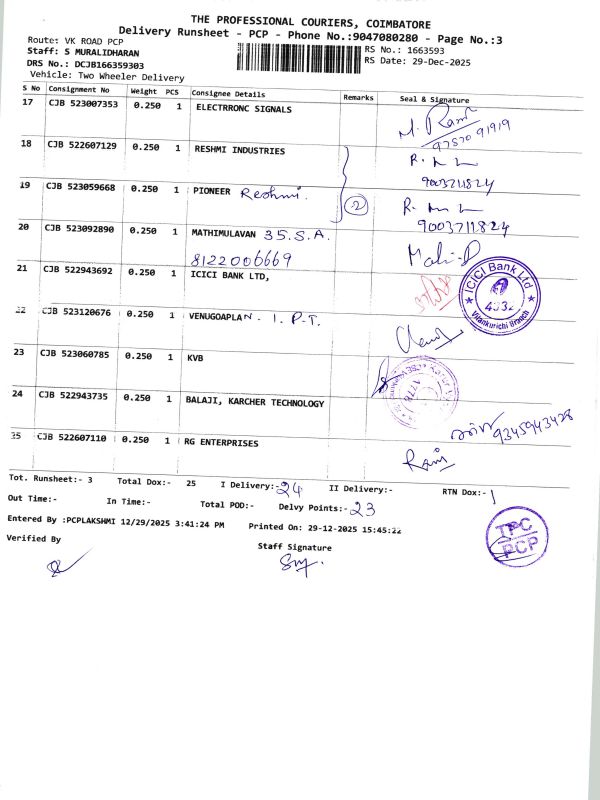 THE PROFESSIONAL COURIERS, COIMBATORE
Delivery Runsheet - PCP - Phone No.:9047080280 - Page No.:3
Route: VK ROAD PCP
RS No.: 1663593
Staff: S MURALIDHARAN
RS Date: 29-Dec-2025
DRS No.: DCJB166359303
Vehicle: Two Wheeler Delivery
S No Consignment No Weight PCS Consignee Details Remarks Seal & Signature
17 CJB 523007353 0.250 1 ELECTRRONC SIGNALS
M. Ram
97570 91919
18 CJB 522607129 0.250 1 RESHMI INDUSTRIES
9003711824
19 CJB 523059668 0.250 1 PIONEER Reshmi.
2
9003711824
20 CJB 523092890 0.250 1 MATHIMULAVAN 35.S.A.
8122006669
21 CJB 522943692 0.250 1 ICICI BANK LTD,
ICICI Bank Ltd
4032
Vilankurichi Branch
22 CJB 523120676 0.250 1 VENUGOAPLAN. I.P.T.
23 CJB 523060785 0.250 1 KVB
1776
24 CJB 522943735 0.250 1 BALAJI, KARCHER TECHNOLOGY
9345943428
25 CJB 522607110 0.250 1 RG ENTERPRISES
Ram
Tot. Runsheet:- 3 Total Dox:- 25 I Delivery:- 24 II Delivery:- RTN Dox:- 1
Out Time:- In Time:- Total POD:- Delvy Points:- 23
Entered By :PCPLAKSHMI 12/29/2025 3:41:24 PM Printed On: 29-12-2025 15:45:22
TPC
PCP
Verified By
Staff Signature